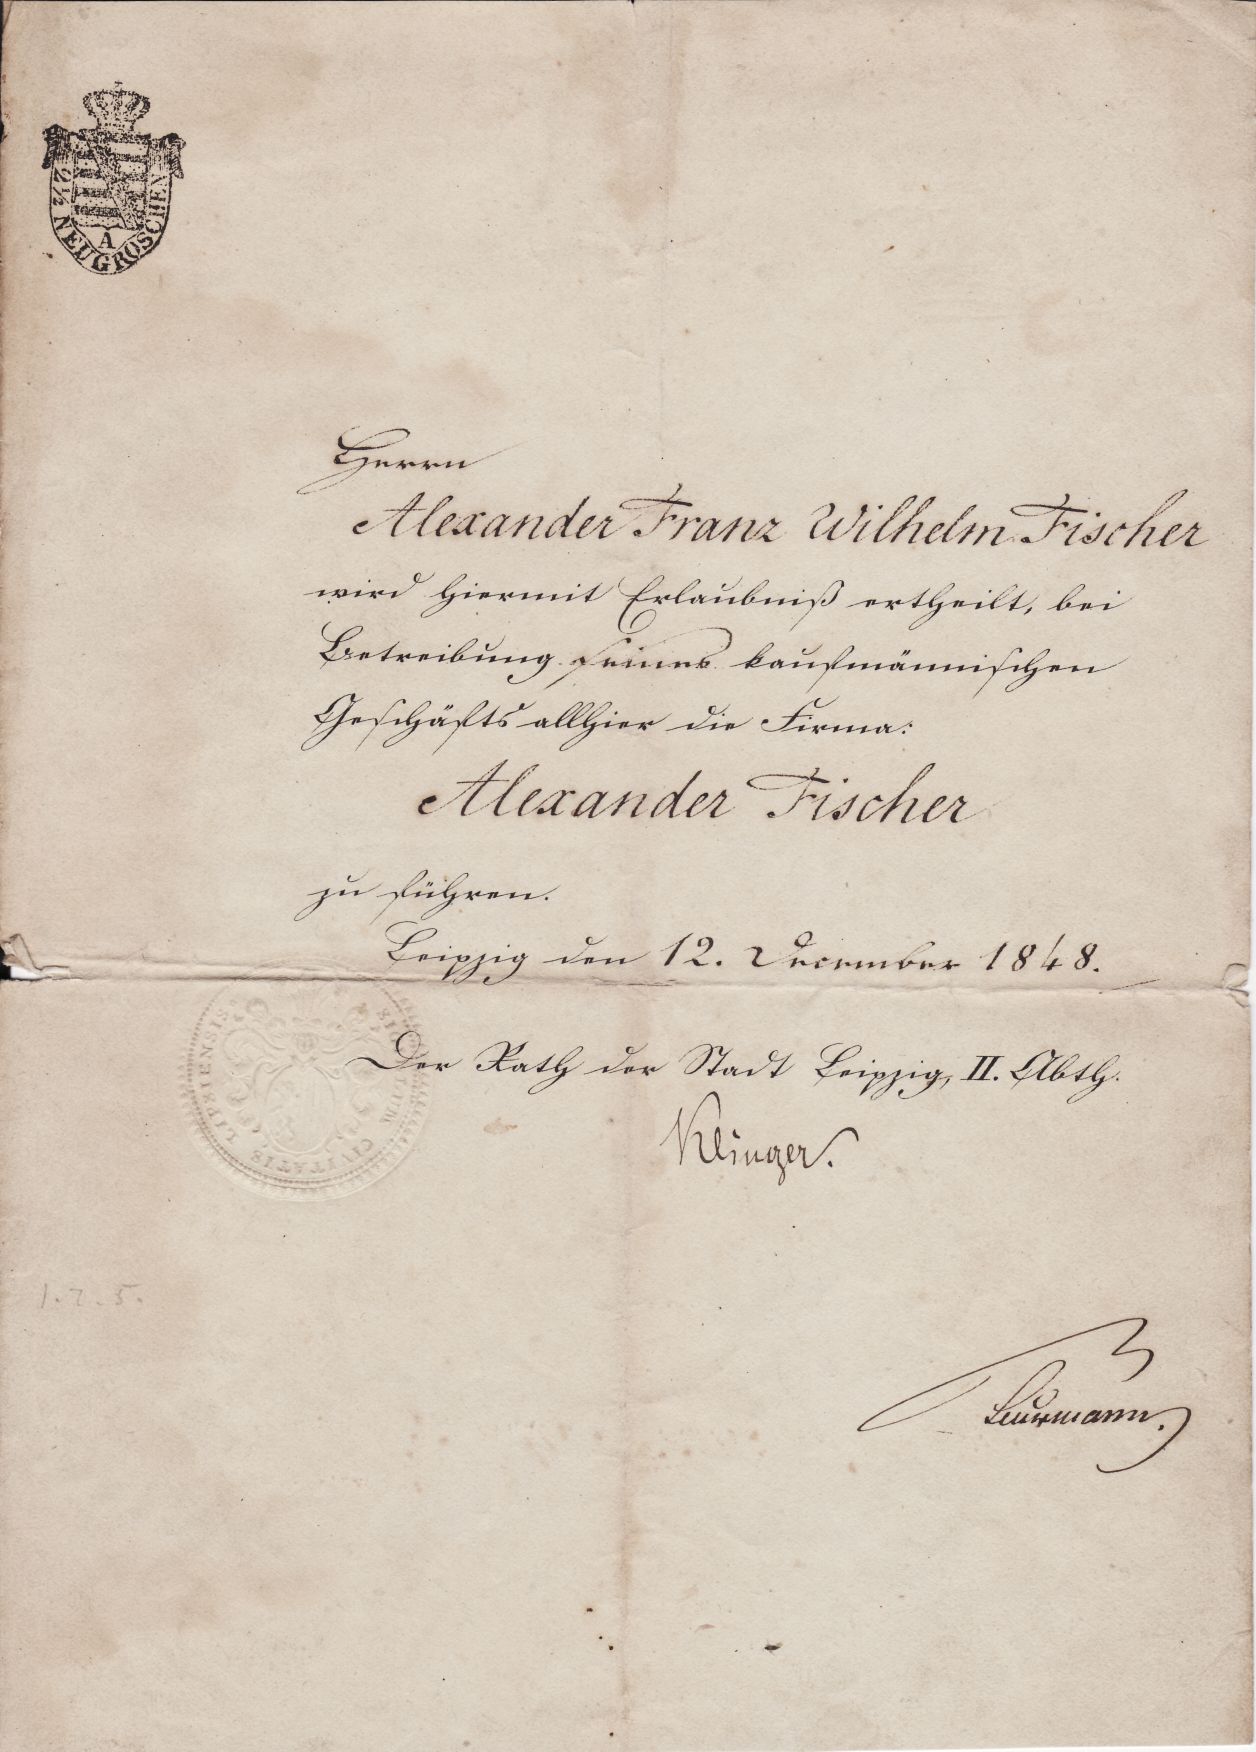 2½ NEUGROSCHEN
A
Herrn
Alexander Franz Wilhelm Fischer
wird hiermit Erlaubniß ertheilt, bei
Betreibung seines kaufmännischen
Geschäfts allhier die Firma:
Alexander Fischer
zu führen.
Leipzig den 12. December 1848.
Der Rath der Stadt Leipzig, II. Abth.
Klinger.
CIVITATIS LIPSIENSIS
1.7.5.